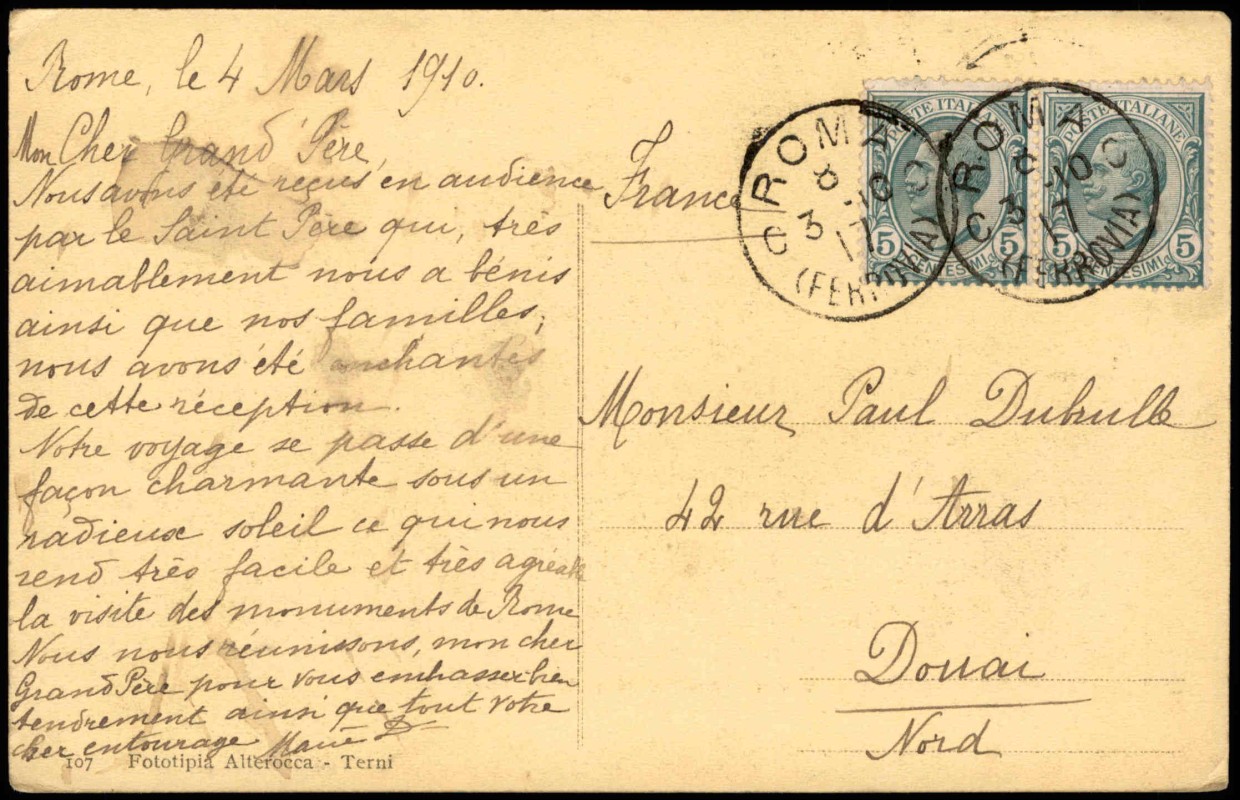 Rome, le 4 Mars 1910.
Mon Cher Grand Père,
Nous avons été reçus en audience
par le Saint Père qui, très
aimablement nous a bénis
ainsi que nos familles,
nous avons été enchantés
de cette réception.
Notre voyage se passe d'une
façon charmante sous un
radieux soleil ce qui nous
rend très facile et très agréable
la visite des monuments de Rome
Nous nous réunissons, mon cher
Grand Père pour vous embrasser bien
tendrement ainsi que tout votre
cher entourage
107 Fototipia Alterocca - Terni
France
ROMA
8
3 10
17
(FERROVIA)
POSTE ITALIANE
5 CENTESIMI 5
ROMA
8
3 10
17
(FERROVIA)
POSTE ITALIANE
5 CENTESIMI 5
Monsieur Paul Dubrulle
42 rue d'Arras
Douai
Nord